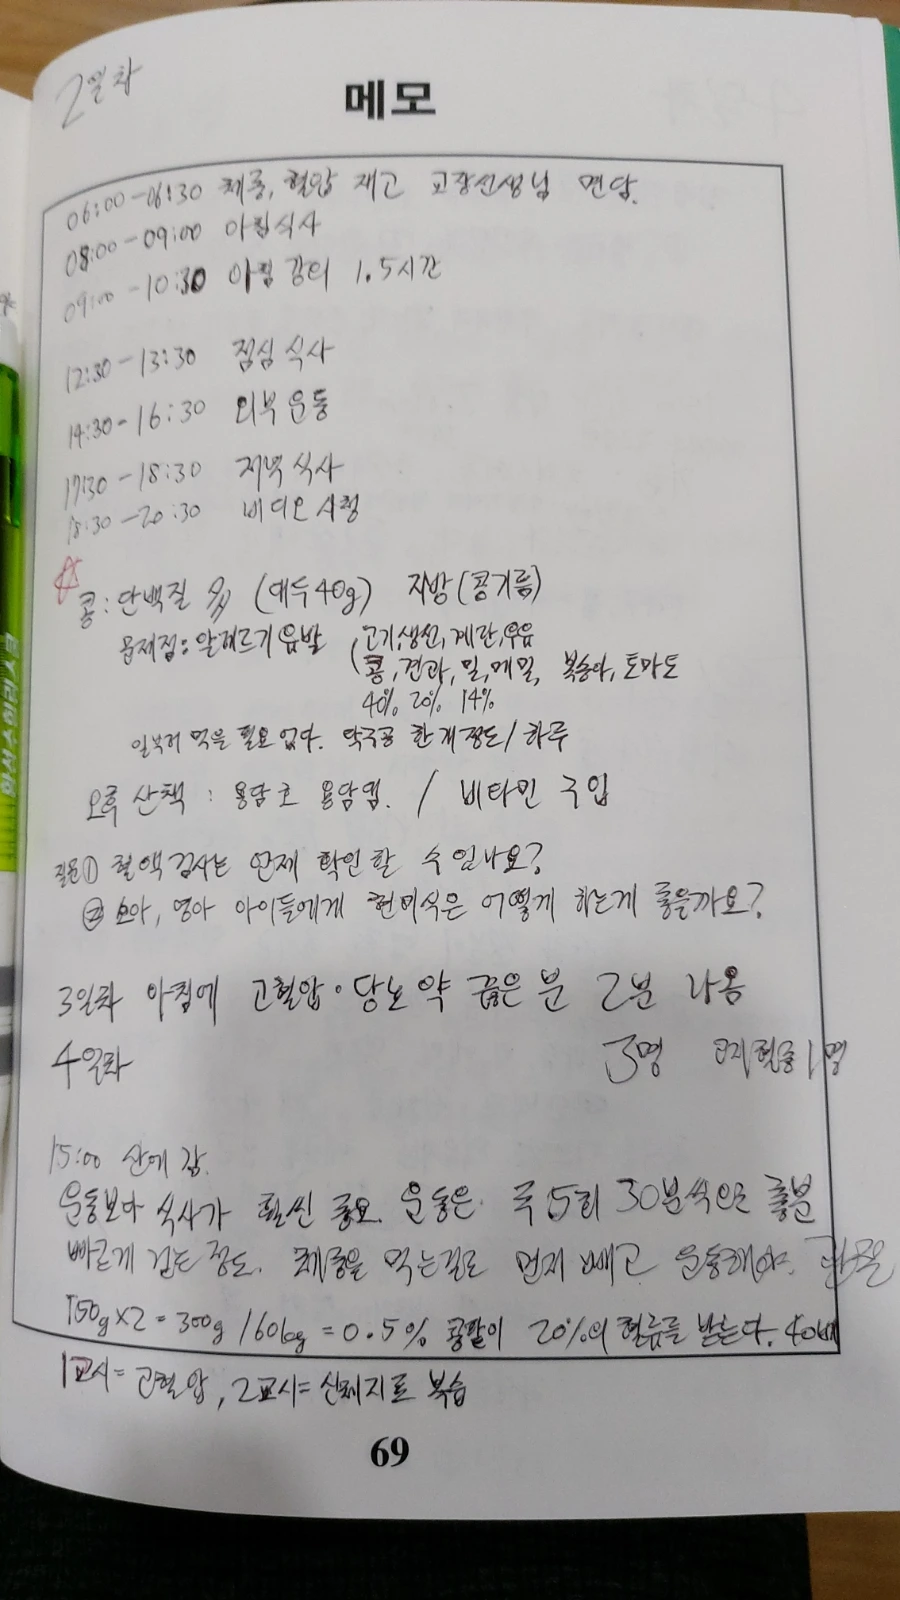 2일차
메모
06:00-06:30 체중, 혈압 재고 교장선생님 면담.
08:00-09:00 아침식사
09:00-10:30 아침 강의 1.5시간
12:30-13:30 점심 식사
14:30-16:30 외부 운동
17:30-18:30 저녁 식사
18:30-20:30 비디오 시청
콩: 단백질 多 (대두40g) 지방(콩기름)
문제점: 알레르기 유발 (고기,생선,계란,우유
콩,견과,밀,메밀, 복숭아, 토마토
40% 20% 14%
일부러 먹을 필요 없다. 약국콩 한 개 정도/하루
오후 산책 : 용담호 용담댐. / 비타민 구입
질문① 혈액검사는 언제 확인할 수 있나요?
② 소아, 영아 아이들에게 현미식은 어떻게 하는게 좋을까요?
3일차 아침에 고혈압·당뇨 약 끊은 분 2분 나옴
4일차 3명 고지혈증 1명
15:00 산에 감.
운동보다 식사가 훨씬 중요. 운동은 주 5회 30분씩으로 충분
빠르게 걷는 정도. 체중을 먹는걸로 먼저 빼고 운동해야.
150g×2=300g/60kg=0.5% 콩팥이 20%의 혈류를 받는다. 40배
1교시=고혈압, 2교시=신체지표 복습
69